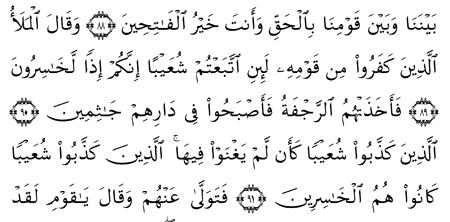 بَيْنَنَا وَبَيْنَ قَوْمِنَا بِٱلْحَقِّ وَأَنتَ خَيْرُ ٱلْفَٰتِحِينَ ٨٨ وَقَالَ ٱلْمَلَأُ
ٱلَّذِينَ كَفَرُوا۟ مِن قَوْمِهِۦ لَئِنِ ٱتَّبَعْتُمْ شُعَيْبًا إِنَّكُمْ إِذًا لَّخَٰسِرُونَ
٨٩ فَأَخَذَتْهُمُ ٱلرَّجْفَةُ فَأَصْبَحُوا۟ فِى دَارِهِمْ جَٰثِمِينَ ٩٠
ٱلَّذِينَ كَذَّبُوا۟ شُعَيْبًا كَأَن لَّمْ يَغْنَوْا۟ فِيهَا ۚ ٱلَّذِينَ كَذَّبُوا۟ شُعَيْبًا
كَانُوا۟ هُمُ ٱلْخَٰسِرِينَ ٩١ فَتَوَلَّىٰ عَنْهُمْ وَقَالَ يَٰقَوْمِ لَقَدْ